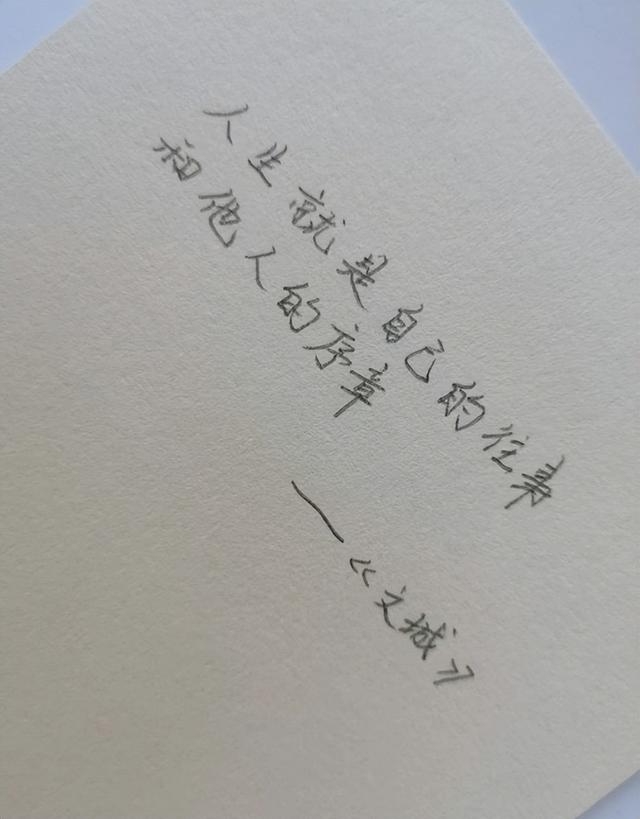 人生就是自己的往事
和他人的序章
—《文城》